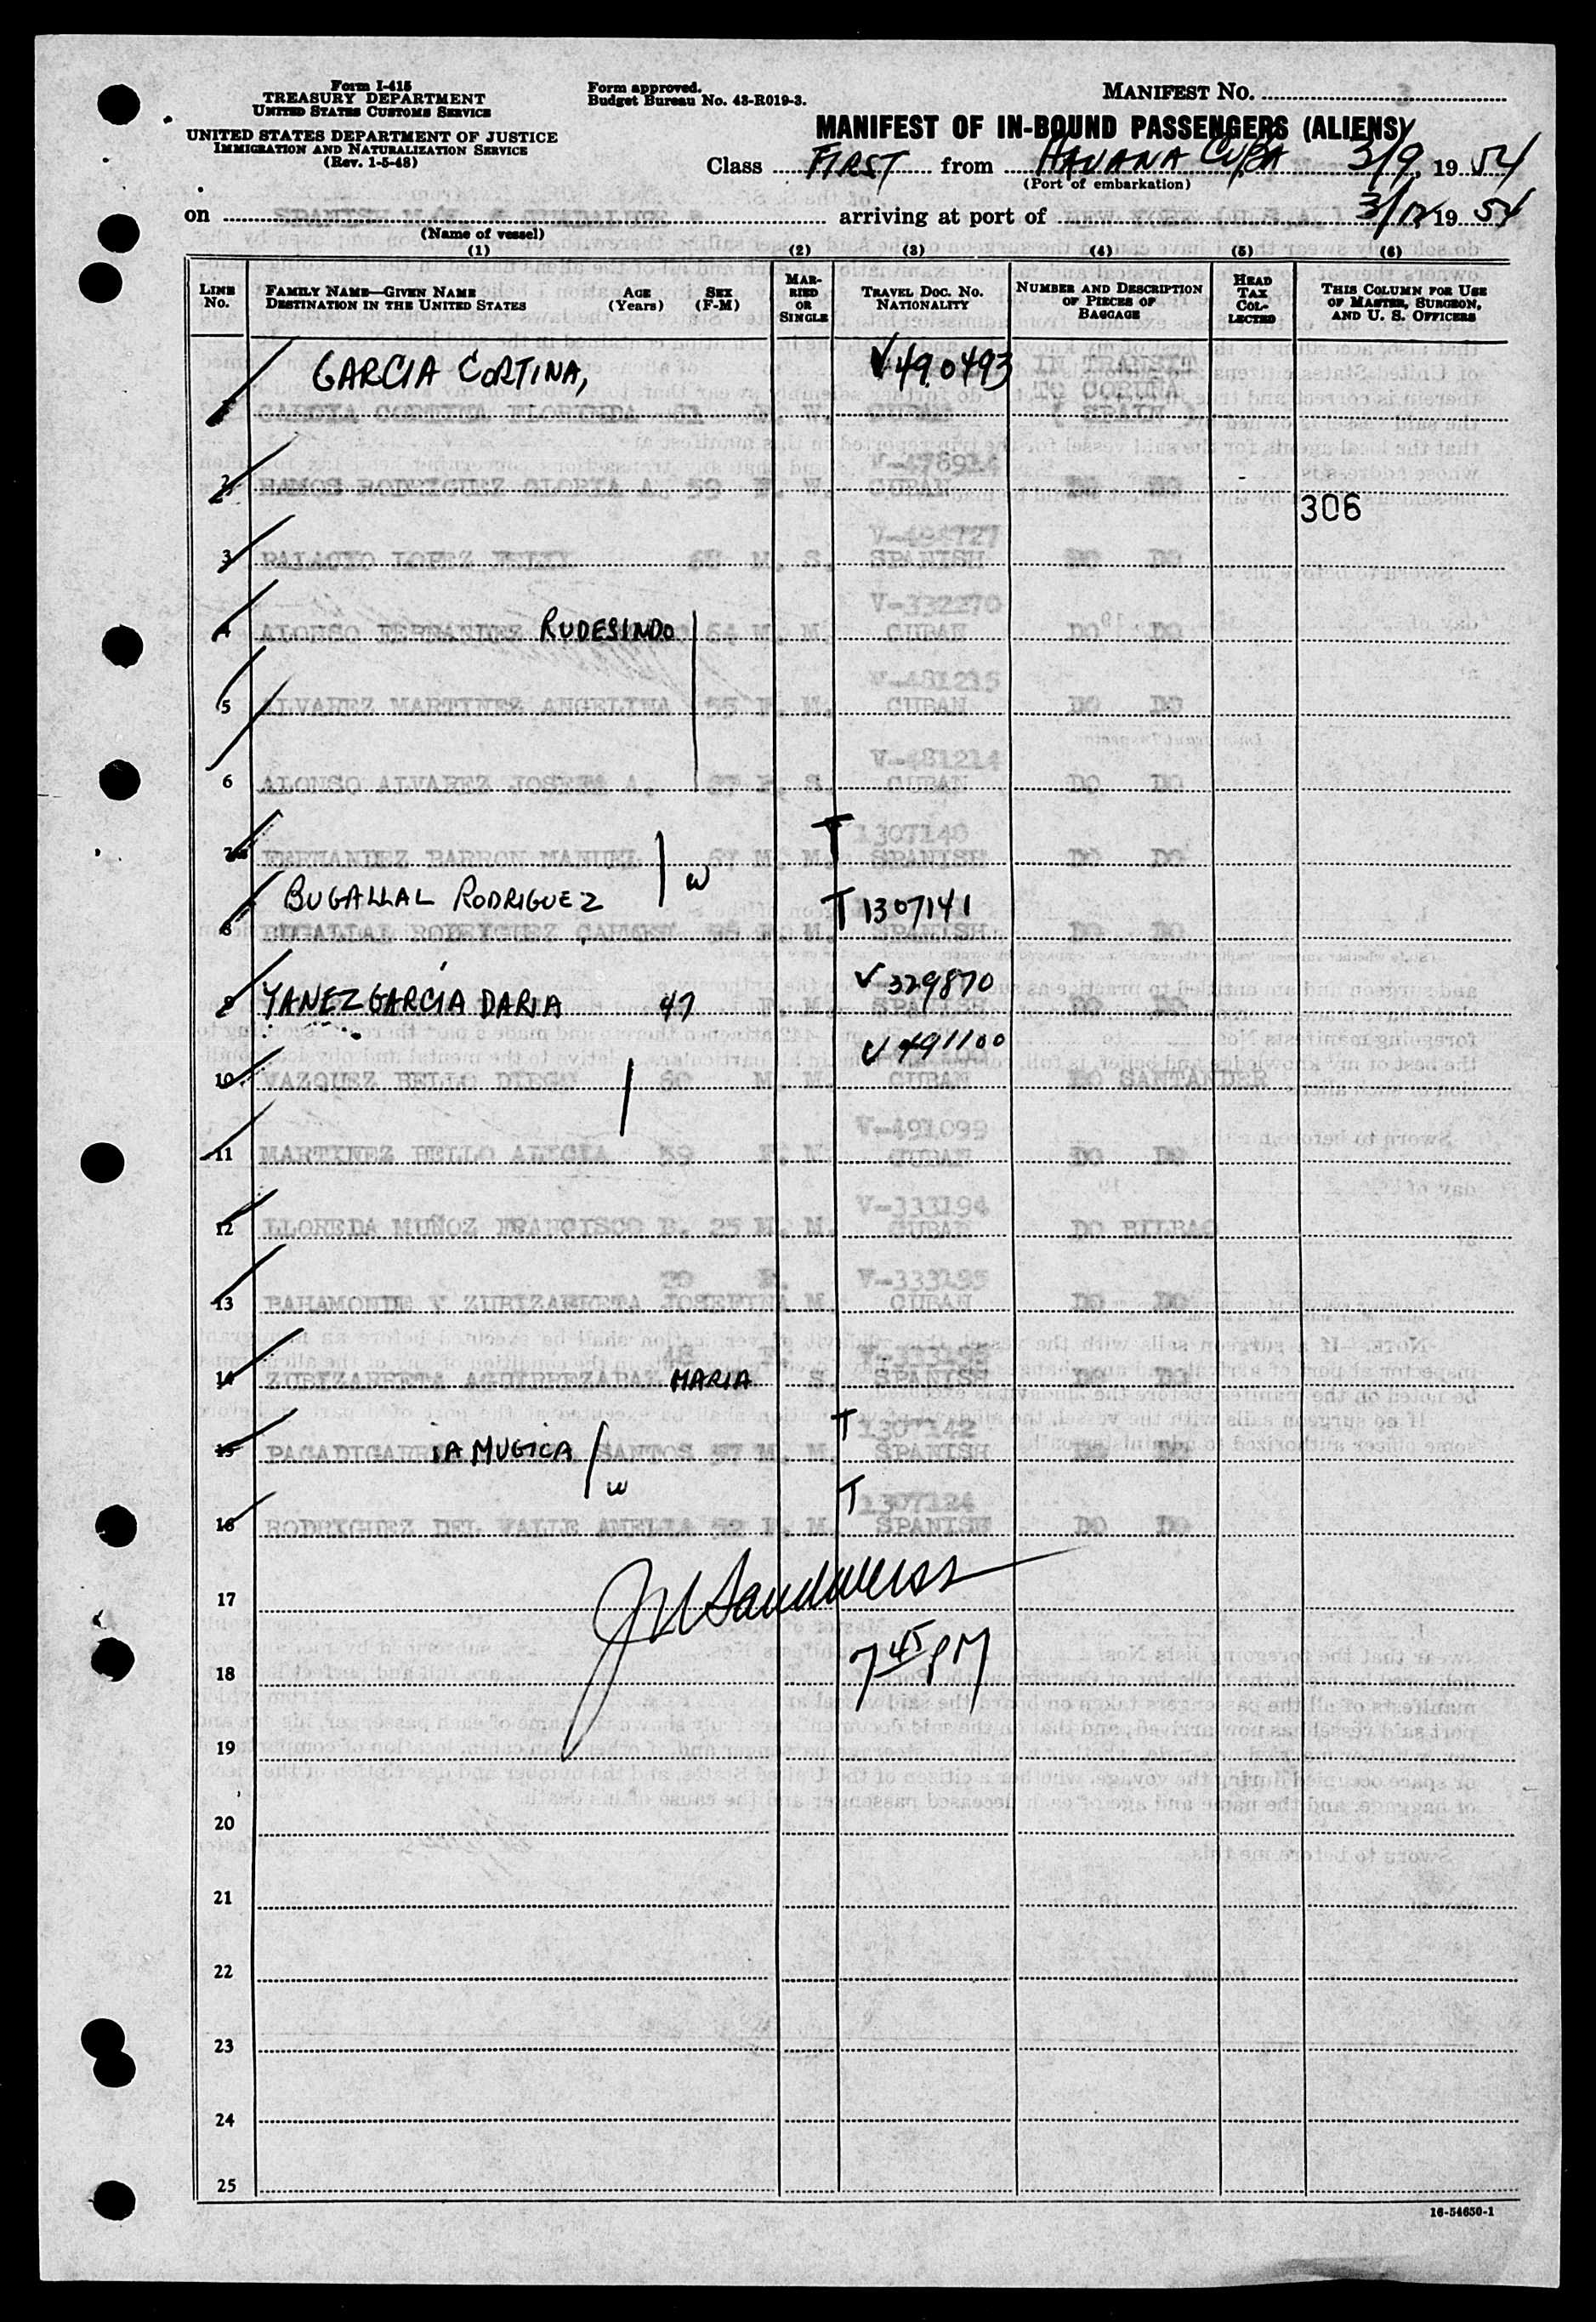 Form I-415
TREASURY DEPARTMENT
UNITED STATES CUSTOMS SERVICE
UNITED STATES DEPARTMENT OF JUSTICE
IMMIGRATION AND NATURALIZATION SERVICE
(Rev. 1-5-48)
Form approved.
Budget Bureau No. 43-R019-3.
MANIFEST NO. 3
MANIFEST OF IN-BOUND PASSENGERS (ALIENS)
Class FIRST from HAVANA CUBA 3/9, 1954
(Port of embarkation)
on SPANISH M/V. " GUADALUPE " arriving at port of NEW YORK (U.S.A.) 3/12 1954
(Name of vessel)
(1) (2) (3) (4) (5) (6)
LINE No. FAMILY NAME—GIVEN NAME DESTINATION IN THE UNITED STATES AGE (Years) SEX (F-M) MARRIED OR SINGLE TRAVEL DOC. NO. NATIONALITY NUMBER AND DESCRIPTION OF PIECES OF BAGGAGE HEAD TAX COLLECTED THIS COLUMN FOR USE OF MASTER, SURGEON, AND U. S. OFFICERS
GARCIA CORTINA, V490493 IN TRANSIT
TO CORUÑA
1 GARCIA CORTINA W. CUBAN ( SPAIN )
V-478914
2 RAMOS RODRIGUEZ GLORIA A. 59 F. W. CUBAN DO DO
306
V-494727
3 PALACIO LOPEZ FELIX 68 M. S. SPANISH DO DO
V-332270
4 ALONSO FERNANDEZ RUDESINDO 64 M. M. CUBAN DO DO
V-481215
5 ALVAREZ MARTINEZ ANGELINA 55 F. M. CUBAN DO DO
V-481214
6 ALONSO ALVAREZ JOSEFA A. 27 F. S. CUBAN DO DO
T 1307140
7 FERNANDEZ BARRON MANUEL 67 M. M. SPANISH DO DO
W
BUGALLAL RODRIGUEZ T 1307141
8 BUGALLAL RODRIGUEZ CARMEN 58 F. M. SPANISH DO DO
V 329870
9 YANEZ GARCIA DARIA 47 F. M. SPANISH DO DO
V 491100
10 VAZQUEZ BELLO DIEGO 60 M. M. CUBAN DO SANTANDER
V-491099
11 MARTINEZ BELLO ALICIA 59 F. M. CUBAN DO DO
V-333194
12 LLOREDA MUÑOZ FRANCISCO B. 25 M. M. CUBAN DO BILBAO
30 F. V-333195
13 BAHAMONDE Y ZUBIZARRETA JOSEFINA M. CUBAN DO DO
48 F.
14 ZUBIZARRETA AGUIRREZABAL MARIA S. SPANISH DO DO
T 1307142
15 PAGADIGARRIA MUGICA SANTOS 57 M. M. SPANISH DO DO
W
T 1307124
16 RODRIGUEZ DEL VALLE AMELIA 52 F. M. SPANISH DO DO
17
7 45 PM
18
19
20
21
22
23
24
25
16-54650-1